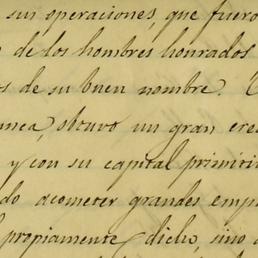 sus operaciones, que fuero
de los hombres honrados
s de su buen nombre.
anca, obtuvo un gran cre
y con su capital primiti
do acometer grandes emp
propiamente dicho, sino